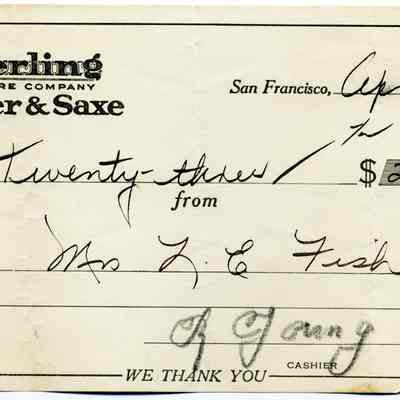 erling
RE COMPANY
er & Saxe
San Francisco, Ap
Twenty-three / $ 2
from
Mrs L. E. Fish
Young
CASHIER
WE THANK YOU